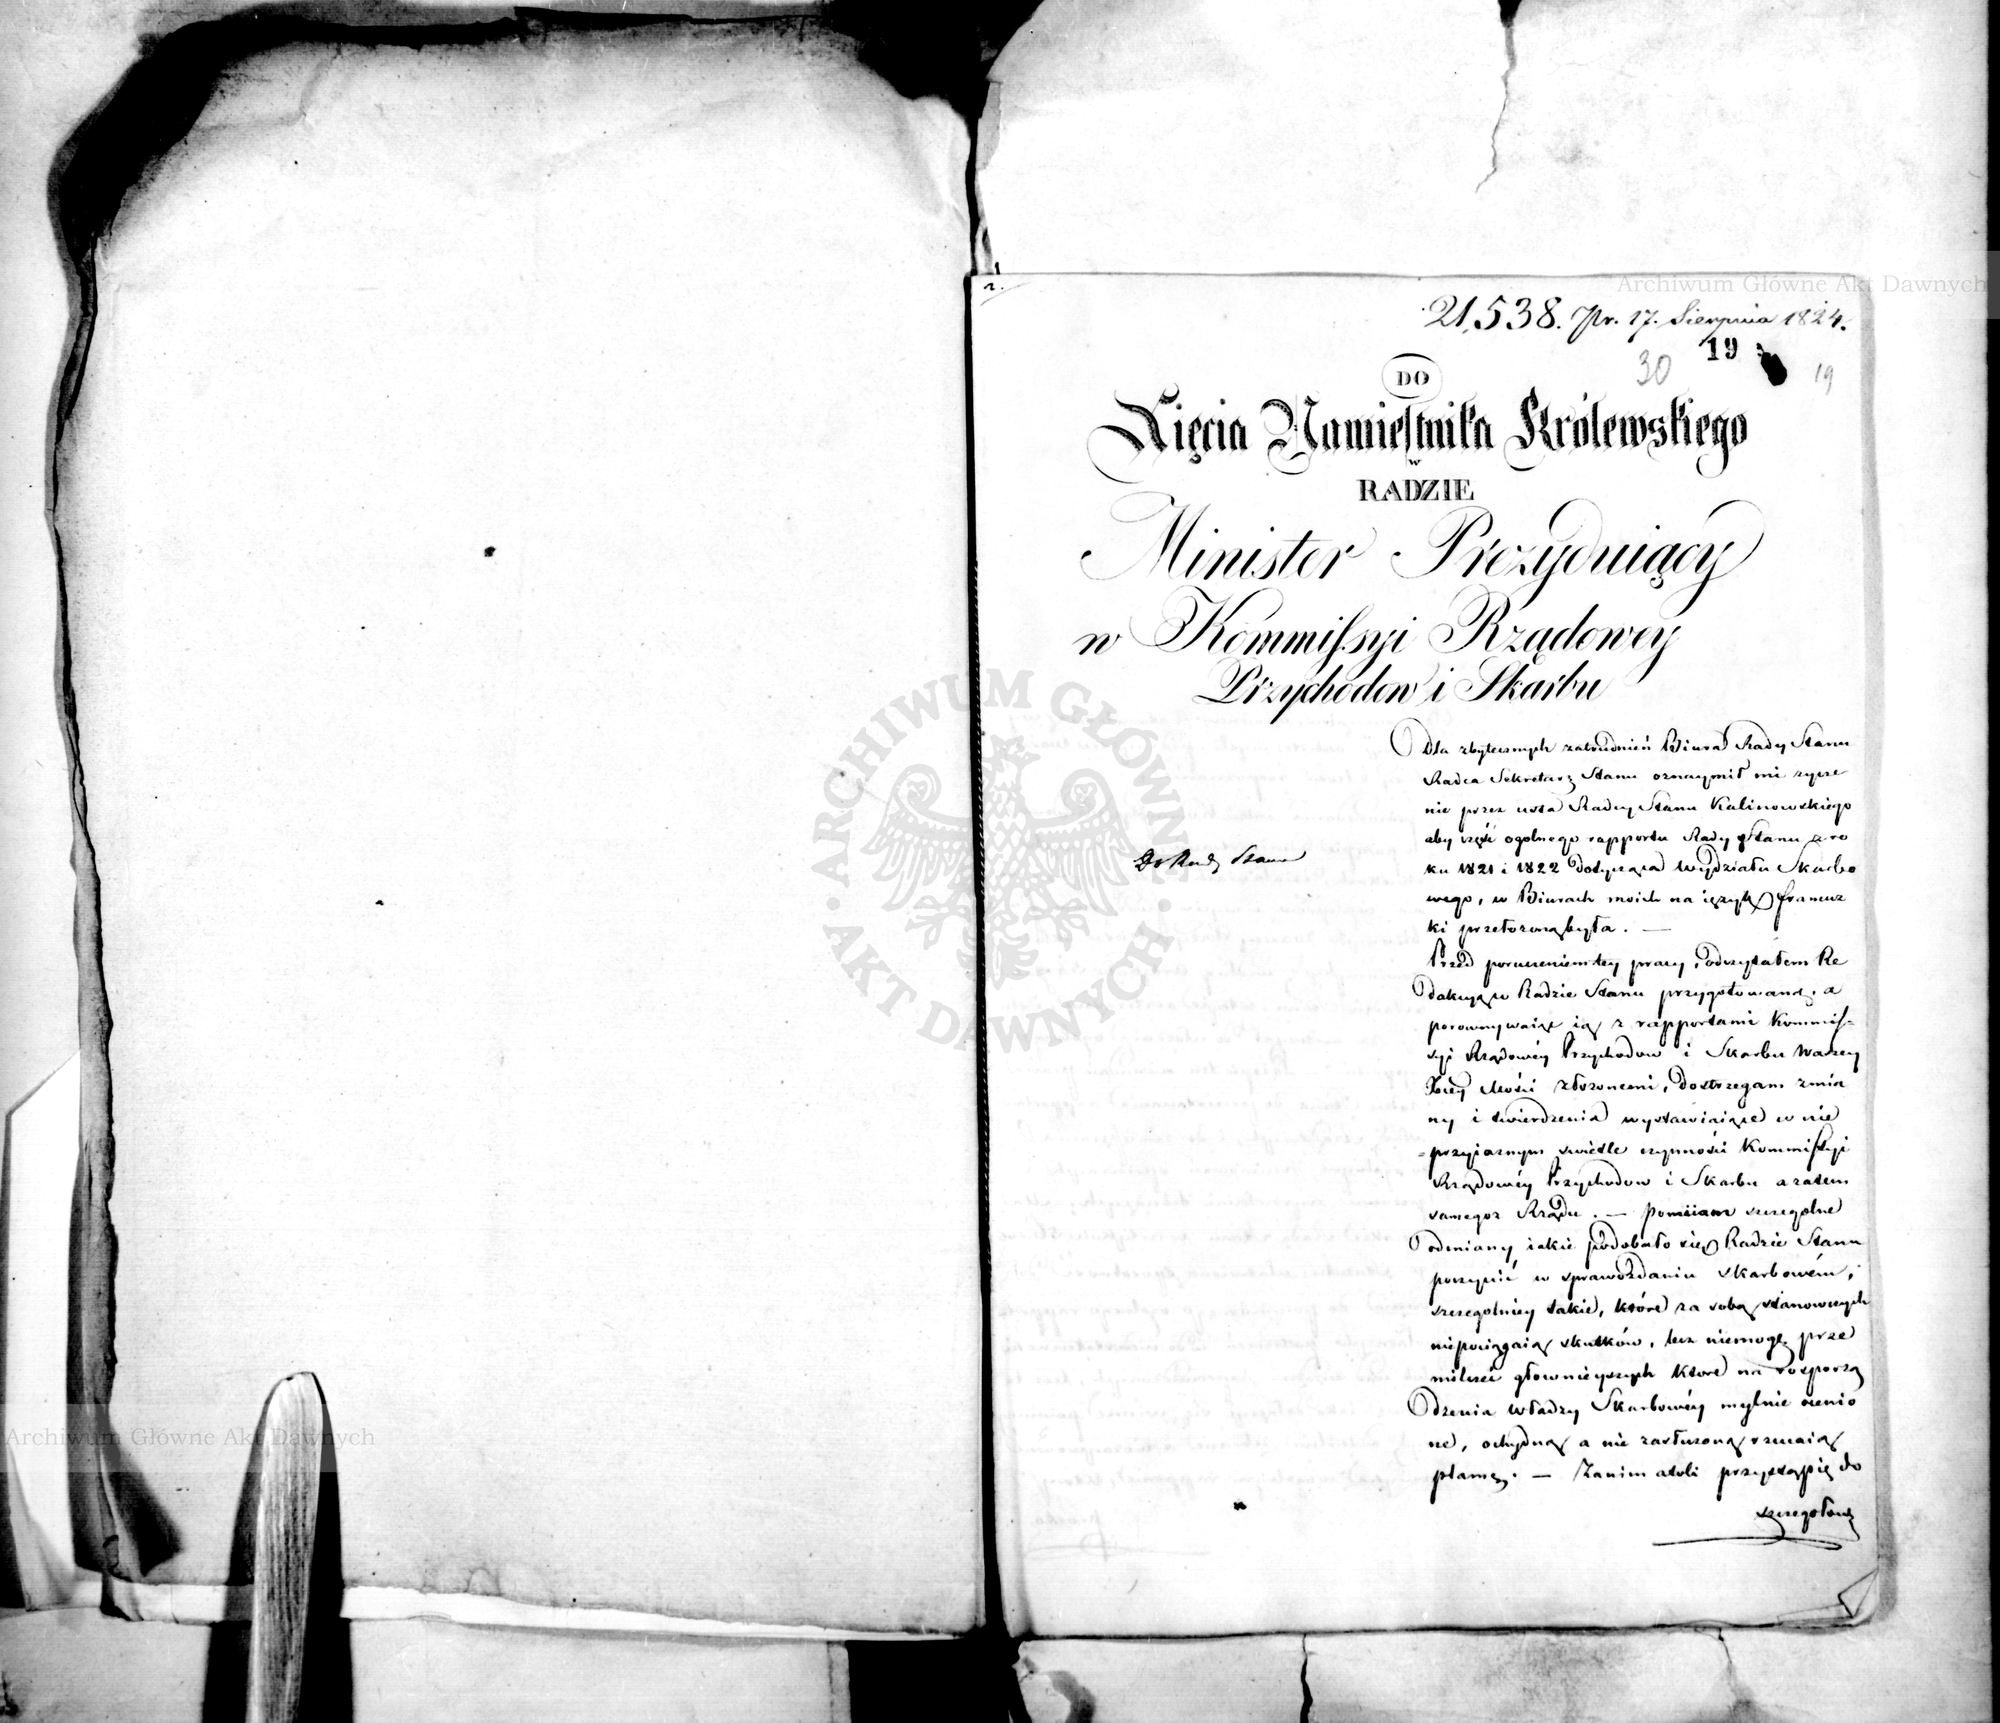 2.
21,538. Pr. 17. Sierpnia 1824.
19
30
19
DO
Xięcia Namiestnika Królewskiego
w
RADZIE
Minister Prezyduiący
w Kommissyi Rządowey
Przychodow i Skarbu
Do Rady Stanu
Dla zbytecznych zatrudnień Biura Rady Stanu
Radca Sekretarz Stanu oznaymił mi życze
nie przez usta Radcy Stanu Kalinowskiego
aby część ogolnego rapportu Rady Stanu z ro
ku 1821 i 1822 dotycząca Wydziału Skarbo
wego, w Biurach moich na ięzyk francuz
ki przełożoną była. —
Przed poruczeniem tey pracy, odczytałem Re
dakcyą w Radzie Stanu przygotowaną, a
porownywaiąc ią z rapportami Kommis-
syi Rządowéy Przychodow i Skarbu Waszey
Xcey Mości złożonemi, dostrzegam zmia
ny i twierdzenia wystawiaiące w nie
=przyiaznym świetle czynności Kommissyi
Rządowéy Przychodow i Skarbu a zatem
samegoż Rządu. — Pomiiam szczegolne
odmiany iakie podobało się Radzie Stanu
poczynić w sprawozdaniu skarbowém,
szczegolniey takie, które za sobą stanowczych
niepociągaią skutków, lecz niemogę prze
milczeć głownieyszych które na rozporzą
dzenia władzy Skarbowéy mylnie ocenio
ne, ochydną a nie zasłużoną rzucaią
plamę. — Zanim atoli przystąpię do
szczegołow
ARCHIWUM GŁÓWNE
· AKT DAWNYCH ·
Archiwum Główne Akt Dawnych
Archiwum Główne Akt Dawnych